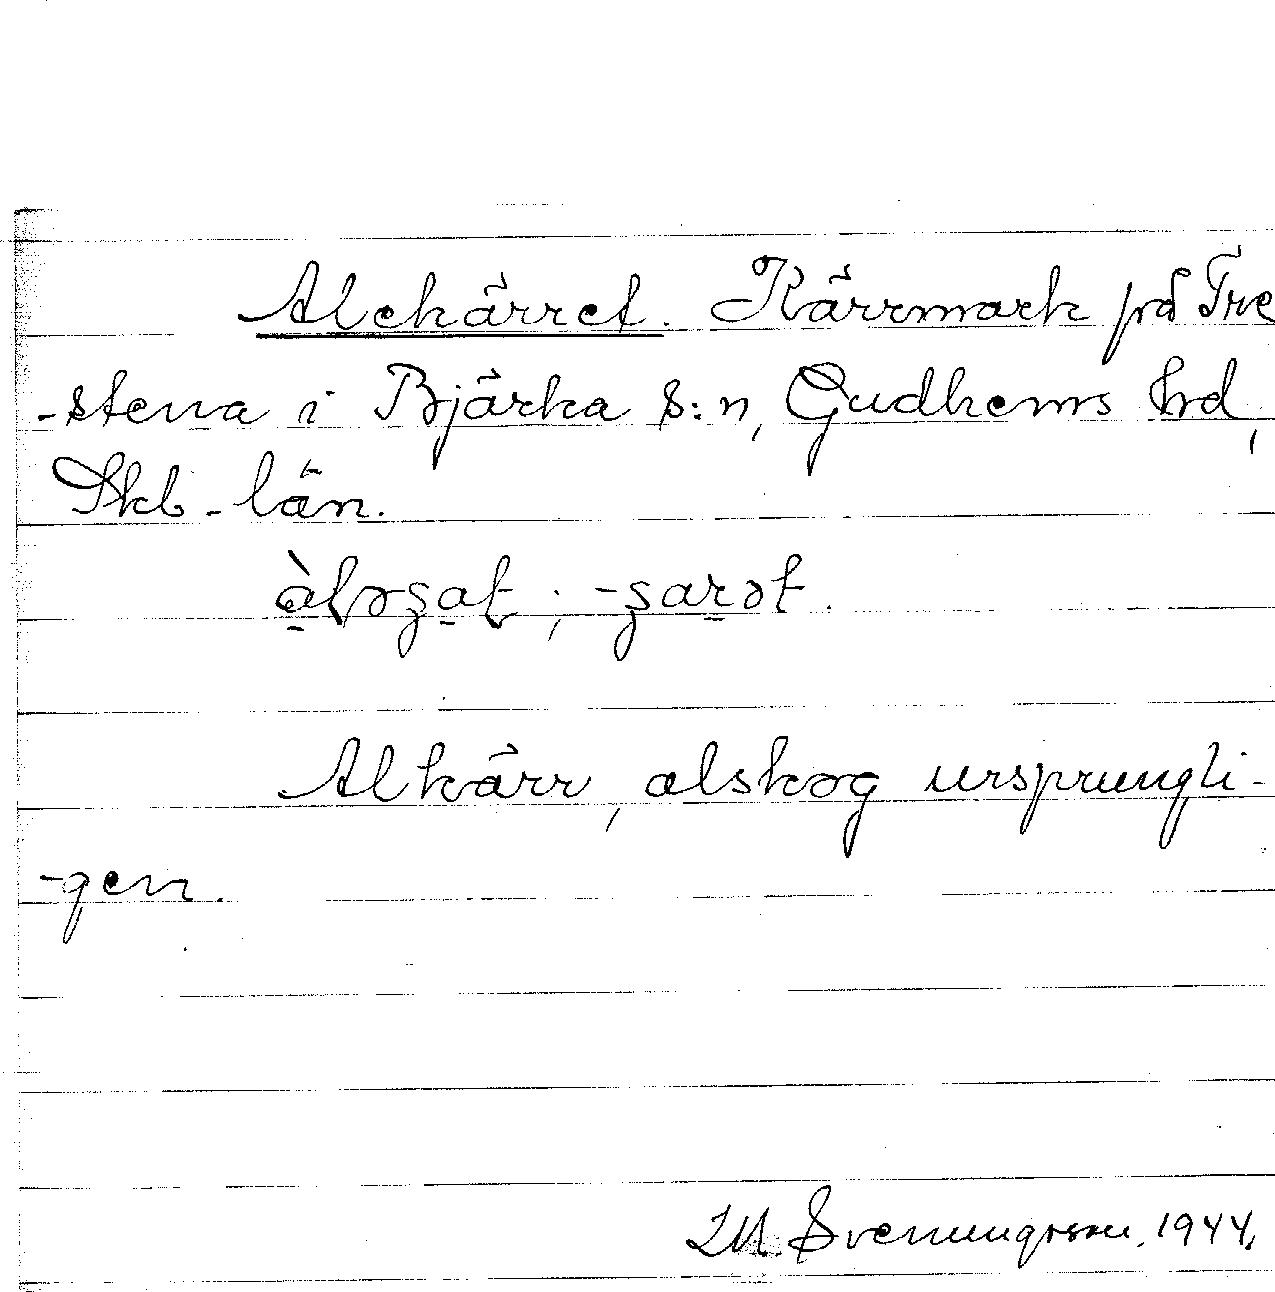 Alekärret. Kärrmark på Tre
-stena i Bjärka s:n, Gudhems hrd,
Skb-län.
Alkärr, alskog ursprungli-
-gen.
Svenungsson, 1944.